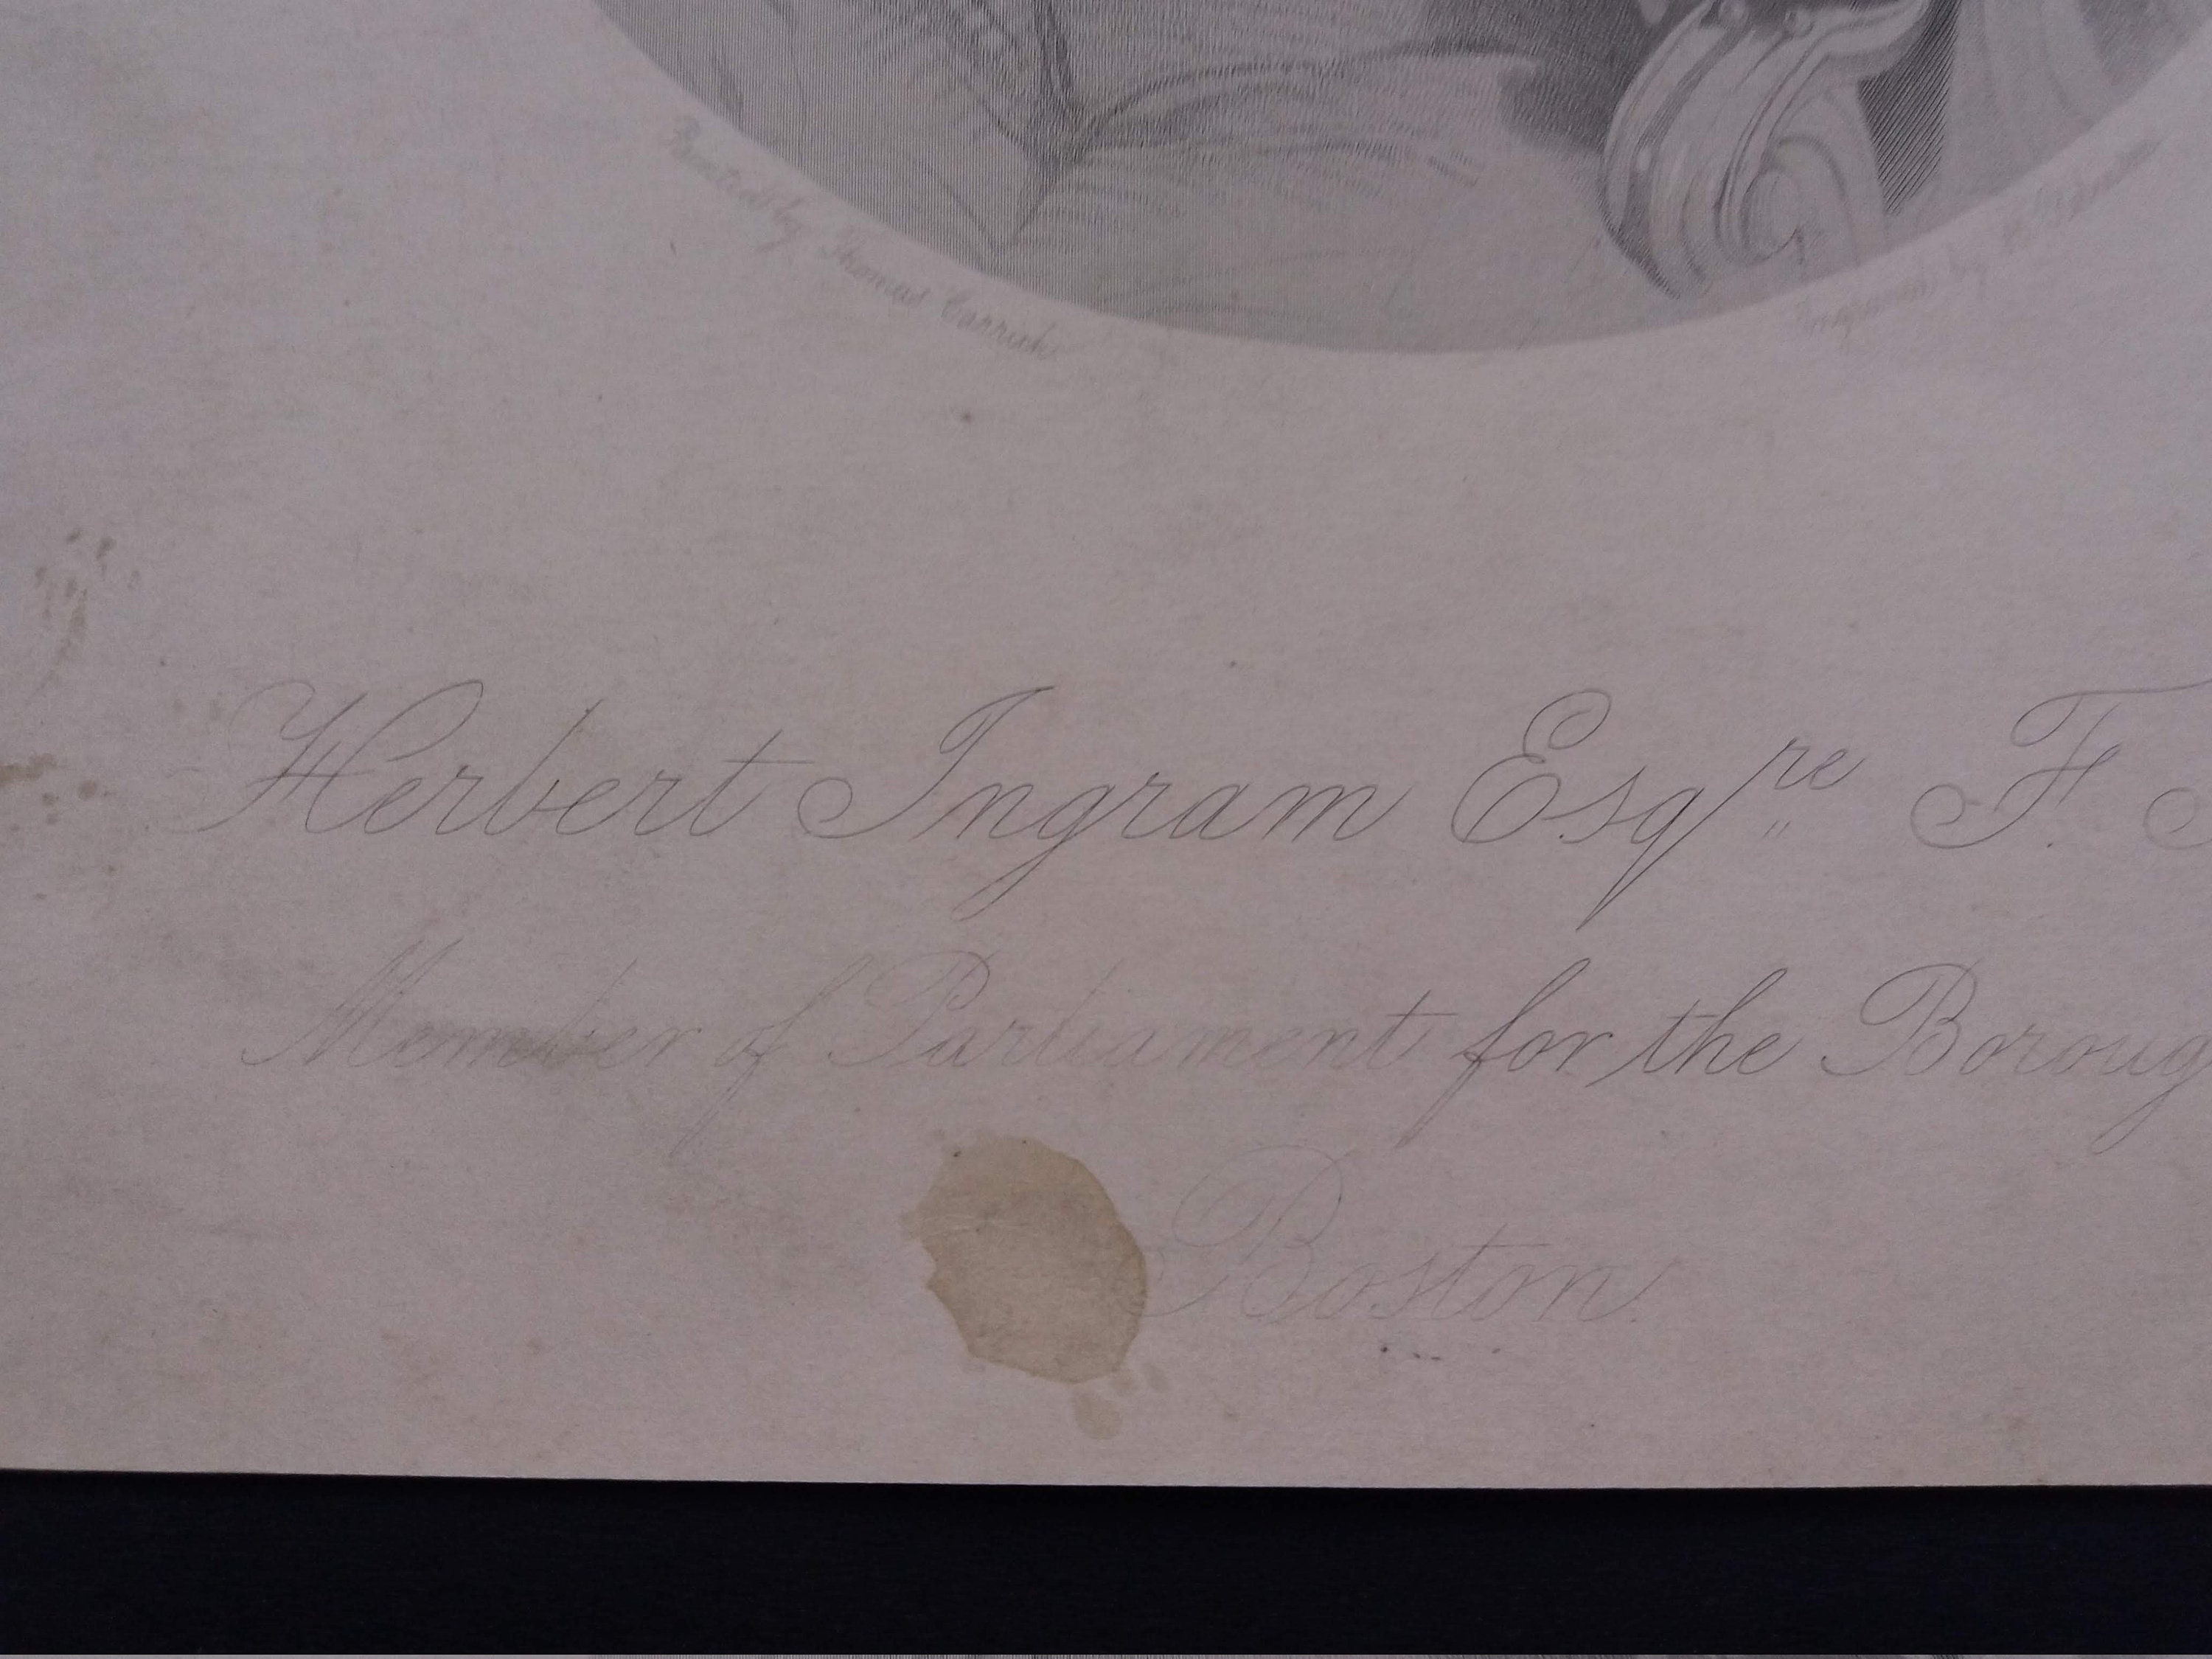 Painted by Thomas Carrick
Engraved by
Herbert Ingram Esqre F.
Member of Parliament for the Boroug
Boston.